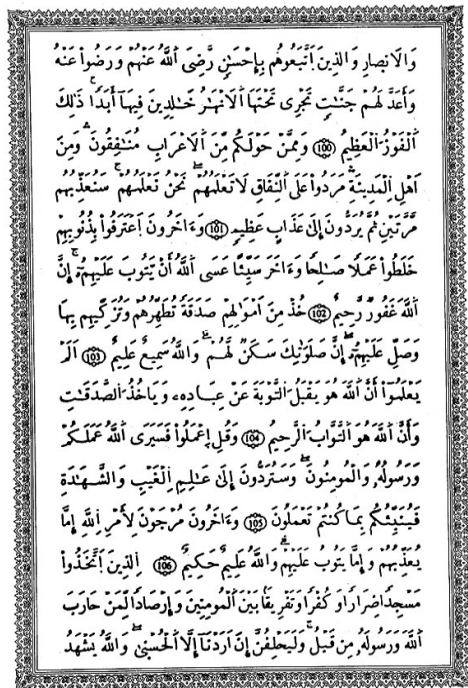 وَالَانصِارِ وَالذِينَ اَتَّبَعُوهُم بِإِحْسَٰنٖ رَّضِيَ اَللَّهُ عَنْهُمْ وَرَضُواْ عَنْهُ
وَأَعَدَّ لَهُمْ جَنَّٰتٖ تَجْرِي تَحْتَهَا اَلَانْهَٰرُ خَٰلِدِينَ فِيهَا أَبَداٗ ذَٰلِكَ
اَلْفَوْزُ اَلْعَظِيمُ 100 وَمِمَّنْ حَوْلَكُم مِّنَ اَلَاعْرَابِ مُنَٰفِقُونَ وَمِنَ
اَهْلِ اِلْمَدِينَةِ مَرَدُواْ عَلَى اَلنِّفَاقِ لَا تَعْلَمُهُمْ نَحْنُ نَعْلَمُهُمْ سَنُعَذِّبُهُم
مَّرَّتَيْنِ ثُمَّ يُرَدُّونَ إِلَىٰ عَذَابٍ عَظِيمٖ 101 وَءَاخَرُونَ اَعْتَرَفُواْ بِذُنُوبِهِمْ
خَلَطُواْ عَمَلاٗ صَٰلِحاٗ وَءَاخَرَ سَيِّئاً عَسَى اَللَّهُ أَنْ يَّتُوبَ عَلَيْهِمُۥ إِنَّ
اَللَّهَ غَفُورٞ رَّحِيمٞ 102 خُذْ مِنَ اَمْوَٰلِهِمْ صَدَقَةٗ تُطَهِّرُهُمْ وَتُزَكِّيهِم بِهَا
وَصَلِّ عَلَيْهِمُۥ إِنَّ صَلَوَٰتِكَ سَكَنٞ لَّهُمْ وَاللَّهُ سَمِيعٌ عَلِيمٌ 103 اَلَمْ
يَعْلَمُواْ أَنَّ اَللَّهَ هُوَ يَقْبَلُ اَلتَّوْبَةَ عَنْ عِبَادِهِۦ وَيَاخُذُ اَلصَّدَقَٰتِ
وَأَنَّ اَللَّهَ هُوَ اَلتَّوَّابُ اَلرَّحِيمُ 104 وَقُلِ اِعْمَلُواْ فَسَيَرَى اَللَّهُ عَمَلَكُمْ
وَرَسُولُهُۥ وَالْمُومِنُونَ وَسَتُرَدُّونَ إِلَىٰ عَٰلِمِ اِلْغَيْبِ وَالشَّهَٰدَةِ
فَيُنَبِّئُكُم بِمَا كُنتُمْ تَعْمَلُونَ 105 وَءَاخَرُونَ مُرْجَوْنَ لِأَمْرِ اِللَّهِ إِمَّا
يُعَذِّبُهُمْ وَإِمَّا يَتُوبُ عَلَيْهِمْ وَاللَّهُ عَلِيمٌ حَكِيمٌ 106 اِلذِينَ اَتَّخَذُواْ
مَسْجِداٗ ضِرَاراٗ وَكُفْراٗ وَتَفْرِيقاَۢ بَيْنَ اَلْمُومِنِينَ وَإِرْصَاداٗ لِّمَنْ حَارَبَ
اَللَّهَ وَرَسُولَهُۥ مِن قَبْلُ وَلَيَحْلِفُنَّ إِنَ اَرَدْنَآ إِلَّا اَلْحُسْنَىٰ وَاللَّهُ يَشْهَدُ